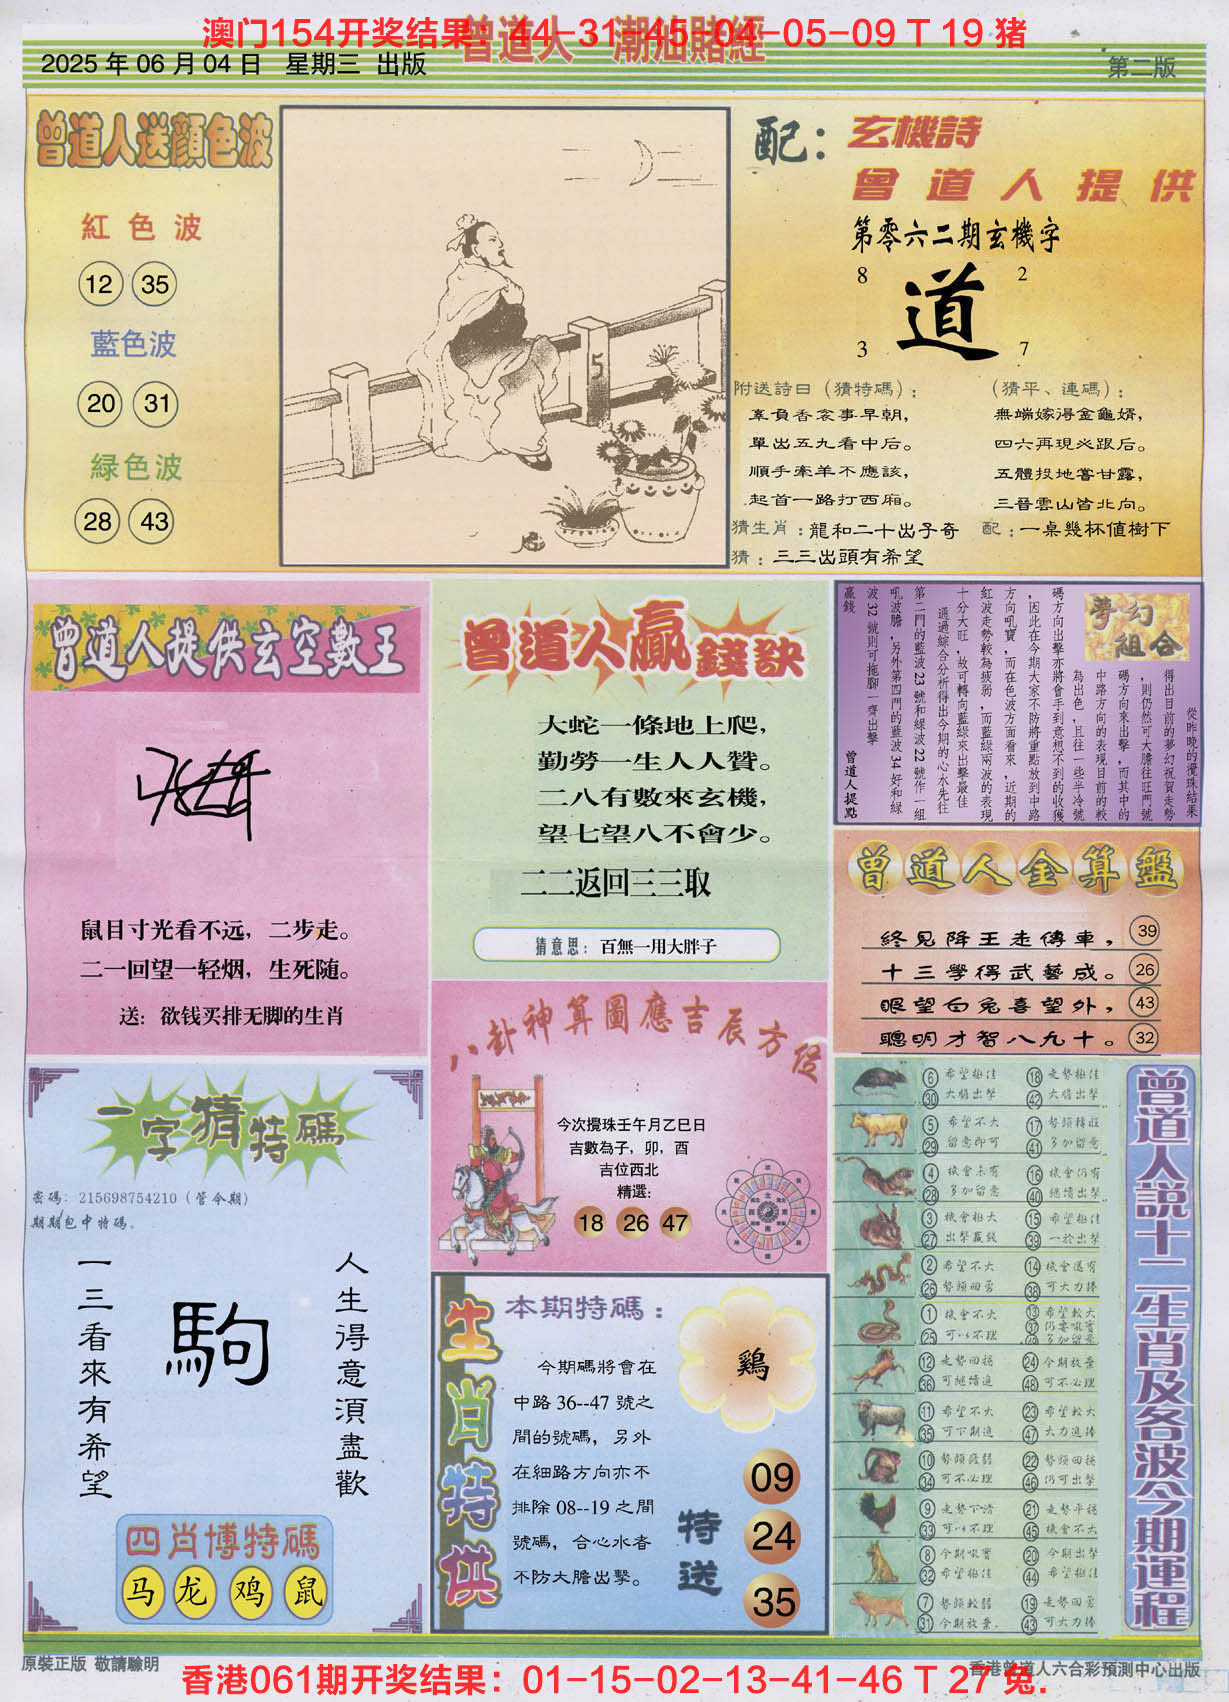 澳门154开奖结果：44-31-45-04-05-09 T 19 猪
曾道人 潮汕賭經
2025 年 06 月 04 日 星期三 出版
第二版
曾道人送顏色波
紅色波
12 35
藍色波
20 31
緑色波
28 43
5
配：
玄機詩
曾道人提供
第零六二期玄機字
8 2
道
3 7
附送詩日（猜特碼）：
辜負香衾事早朝，
單出五九看中后。
順手牽羊不應該，
起首一路打西廂。
（猜平、連碼）：
無端嫁得金龜婿，
四六再現必跟后。
五體投地嘗甘露，
三晉雲山皆北向。
猜生肖：龍和二十出子奇
配：一桌幾杯值樹下
猜：三三出頭有希望
曾道人提供玄空數王
鼠目寸光看不远，二步走。
二一回望一轻烟，生死随。
送：欲钱买排无脚的生肖
曾道人贏錢訣
大蛇一條地上爬，
勤勞一生人人贊。
二八有數來玄機，
望七望八不會少。
二二返回三三取
猜意思：百無一用大胖子
夢幻組合
從昨晚的攪珠結果
得出目前的夢幻祝賀走勢
，則仍然可大膽往旺門號
碼方向來出擊，而其中的
中路方向的表現目前的較
為出色，且往一些半冷號
碼方向出擊亦將會手到意想不到的收獲
，因此在今期大家不防將重點放到中路
方向吼寶，而在色波方面看來，近期的
紅波走勢較為疲弱，而藍綠兩波的表現
十分大旺，故可轉向藍綠來出擊最佳
通過綜合分析得出今期的心水先往
第二門的藍波23號和綠波22號作一組
吼波膽，另外第四門的藍波34好和綠
波32號則可拖腳一齊出擊
贏錢
曾道人提點
曾道人金算盤
終見降王走傳車， 39
十三學得武藝成。 26
眼望白兔喜望外， 43
聰明才智八九十。 32
八卦神算圖應吉辰方位
今次攪珠壬午月乙巳日
吉數為子，卯，酉
吉位西北
精選：
18 26 47
一字猜特碼
密碼：215698754210（管今期）
期期包中特碼。
一三看來有希望
駒
人生得意須盡歡
四肖博特碼
马 龙 鸡 鼠
生肖特供
本期特碼：
今期碼將會在
中路 36--47 號之
間的號碼，另外
在細路方向亦不
排除 08--19 之間
號碼，合心水者
不防大膽出擊。
鷄
特送
09
24
35
曾道人説十二生肖及各波今期運程
6 希望極佳 18 走勢極佳
30 大膽出擊 42 大膽出擊
5 希望不大 17 勢頭轉旺
29 留意即可 41 多加留意
4 機會未有 16 機會仍有
28 多加留意 40 繼續出擊
3 機會極大 15 希望極佳
27 出擊贏錢 39 一於出擊
2 希望不大 14 機會還有
26 勢頭回勇 38 可大力捧
1 機會不大 13 希望較大
25 可以不理 37 仍要吼實
49 多加留意
12 走勢回穩 24 今期放棄
36 可繼續追 48 可不必理
11 希望不大 23 希望較大
35 可下期追 47 大力追捧
10 勢頭疲弱 22 勢頭回穩
34 可不必理 46 仍可出擊
9 走勢下滑 21 走勢平穩
33 可以不理 45 機會不大
8 今期吼實 20 今期出擊
32 希望極佳 44 希望極佳
7 勢頭較弱 19 走勢回勇
31 今期放棄. 43 可大力捧
原裝正版 敬請驗明
香港061期开奖结果：01-15-02-13-41-46 T 27 兔.
香港曾道人六合彩預測中心出版